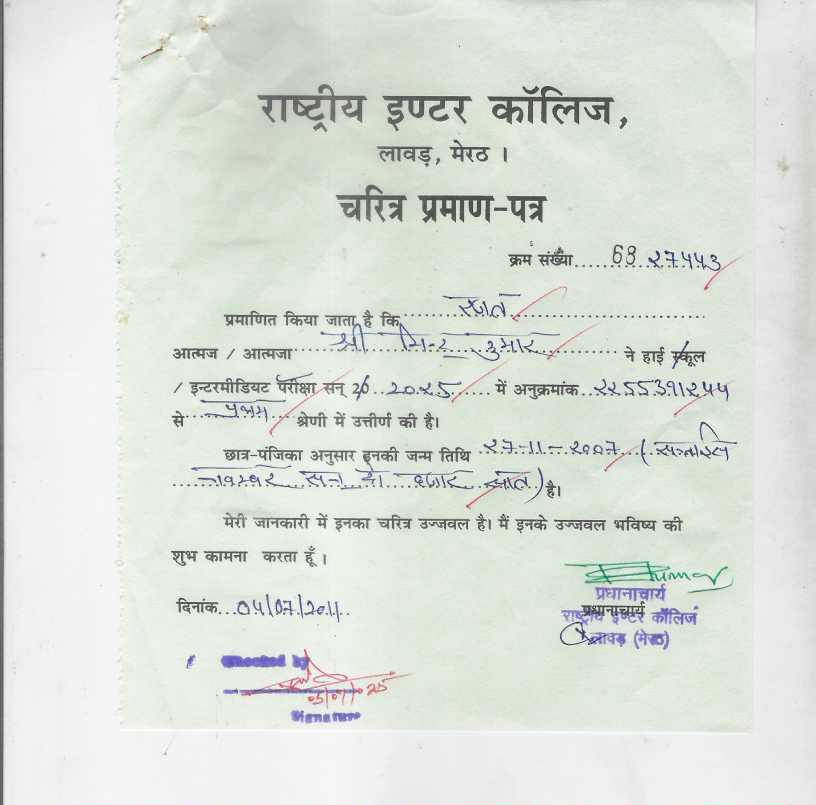 राष्ट्रीय इण्टर कॉलिज,
लावड़, मेरठ ।
चरित्र प्रमाण-पत्र
क्रम संख्या......68 २७५५३
प्रमाणित किया जाता है कि
आत्मज / आत्मजा श्री कुमार ने हाई स्कूल
/ इन्टरमीडियट परीक्षा सन् 20 २०२५ में अनुक्रमांक
से प्रथम श्रेणी में उत्तीर्ण की है।
छात्र-पंजिका अनुसार इनकी जन्म तिथि २७-11-२००७ (सत्ताईस
नवम्बर सन् दो हजार सात) है।
मेरी जानकारी में इनका चरित्र उज्जवल है। मैं इनके उज्जवल भविष्य की
शुभ कामना करता हूँ ।
Kumar
प्रधानाचार्य
दिनांक...04/07/2011
प्रधानाचार्य
राष्ट्रीय इण्टर कॉलिज
लावड़ (मेरठ)
Checked by
05/07/25
Signature